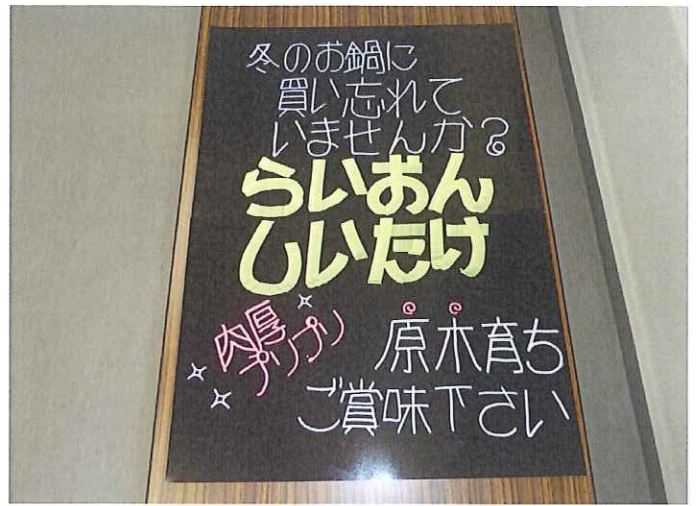 冬のお鍋に
買い忘れて
いませんか?
らいおん
しいたけ
肉厚
プリプリ
原木育ち
ご賞味下さい